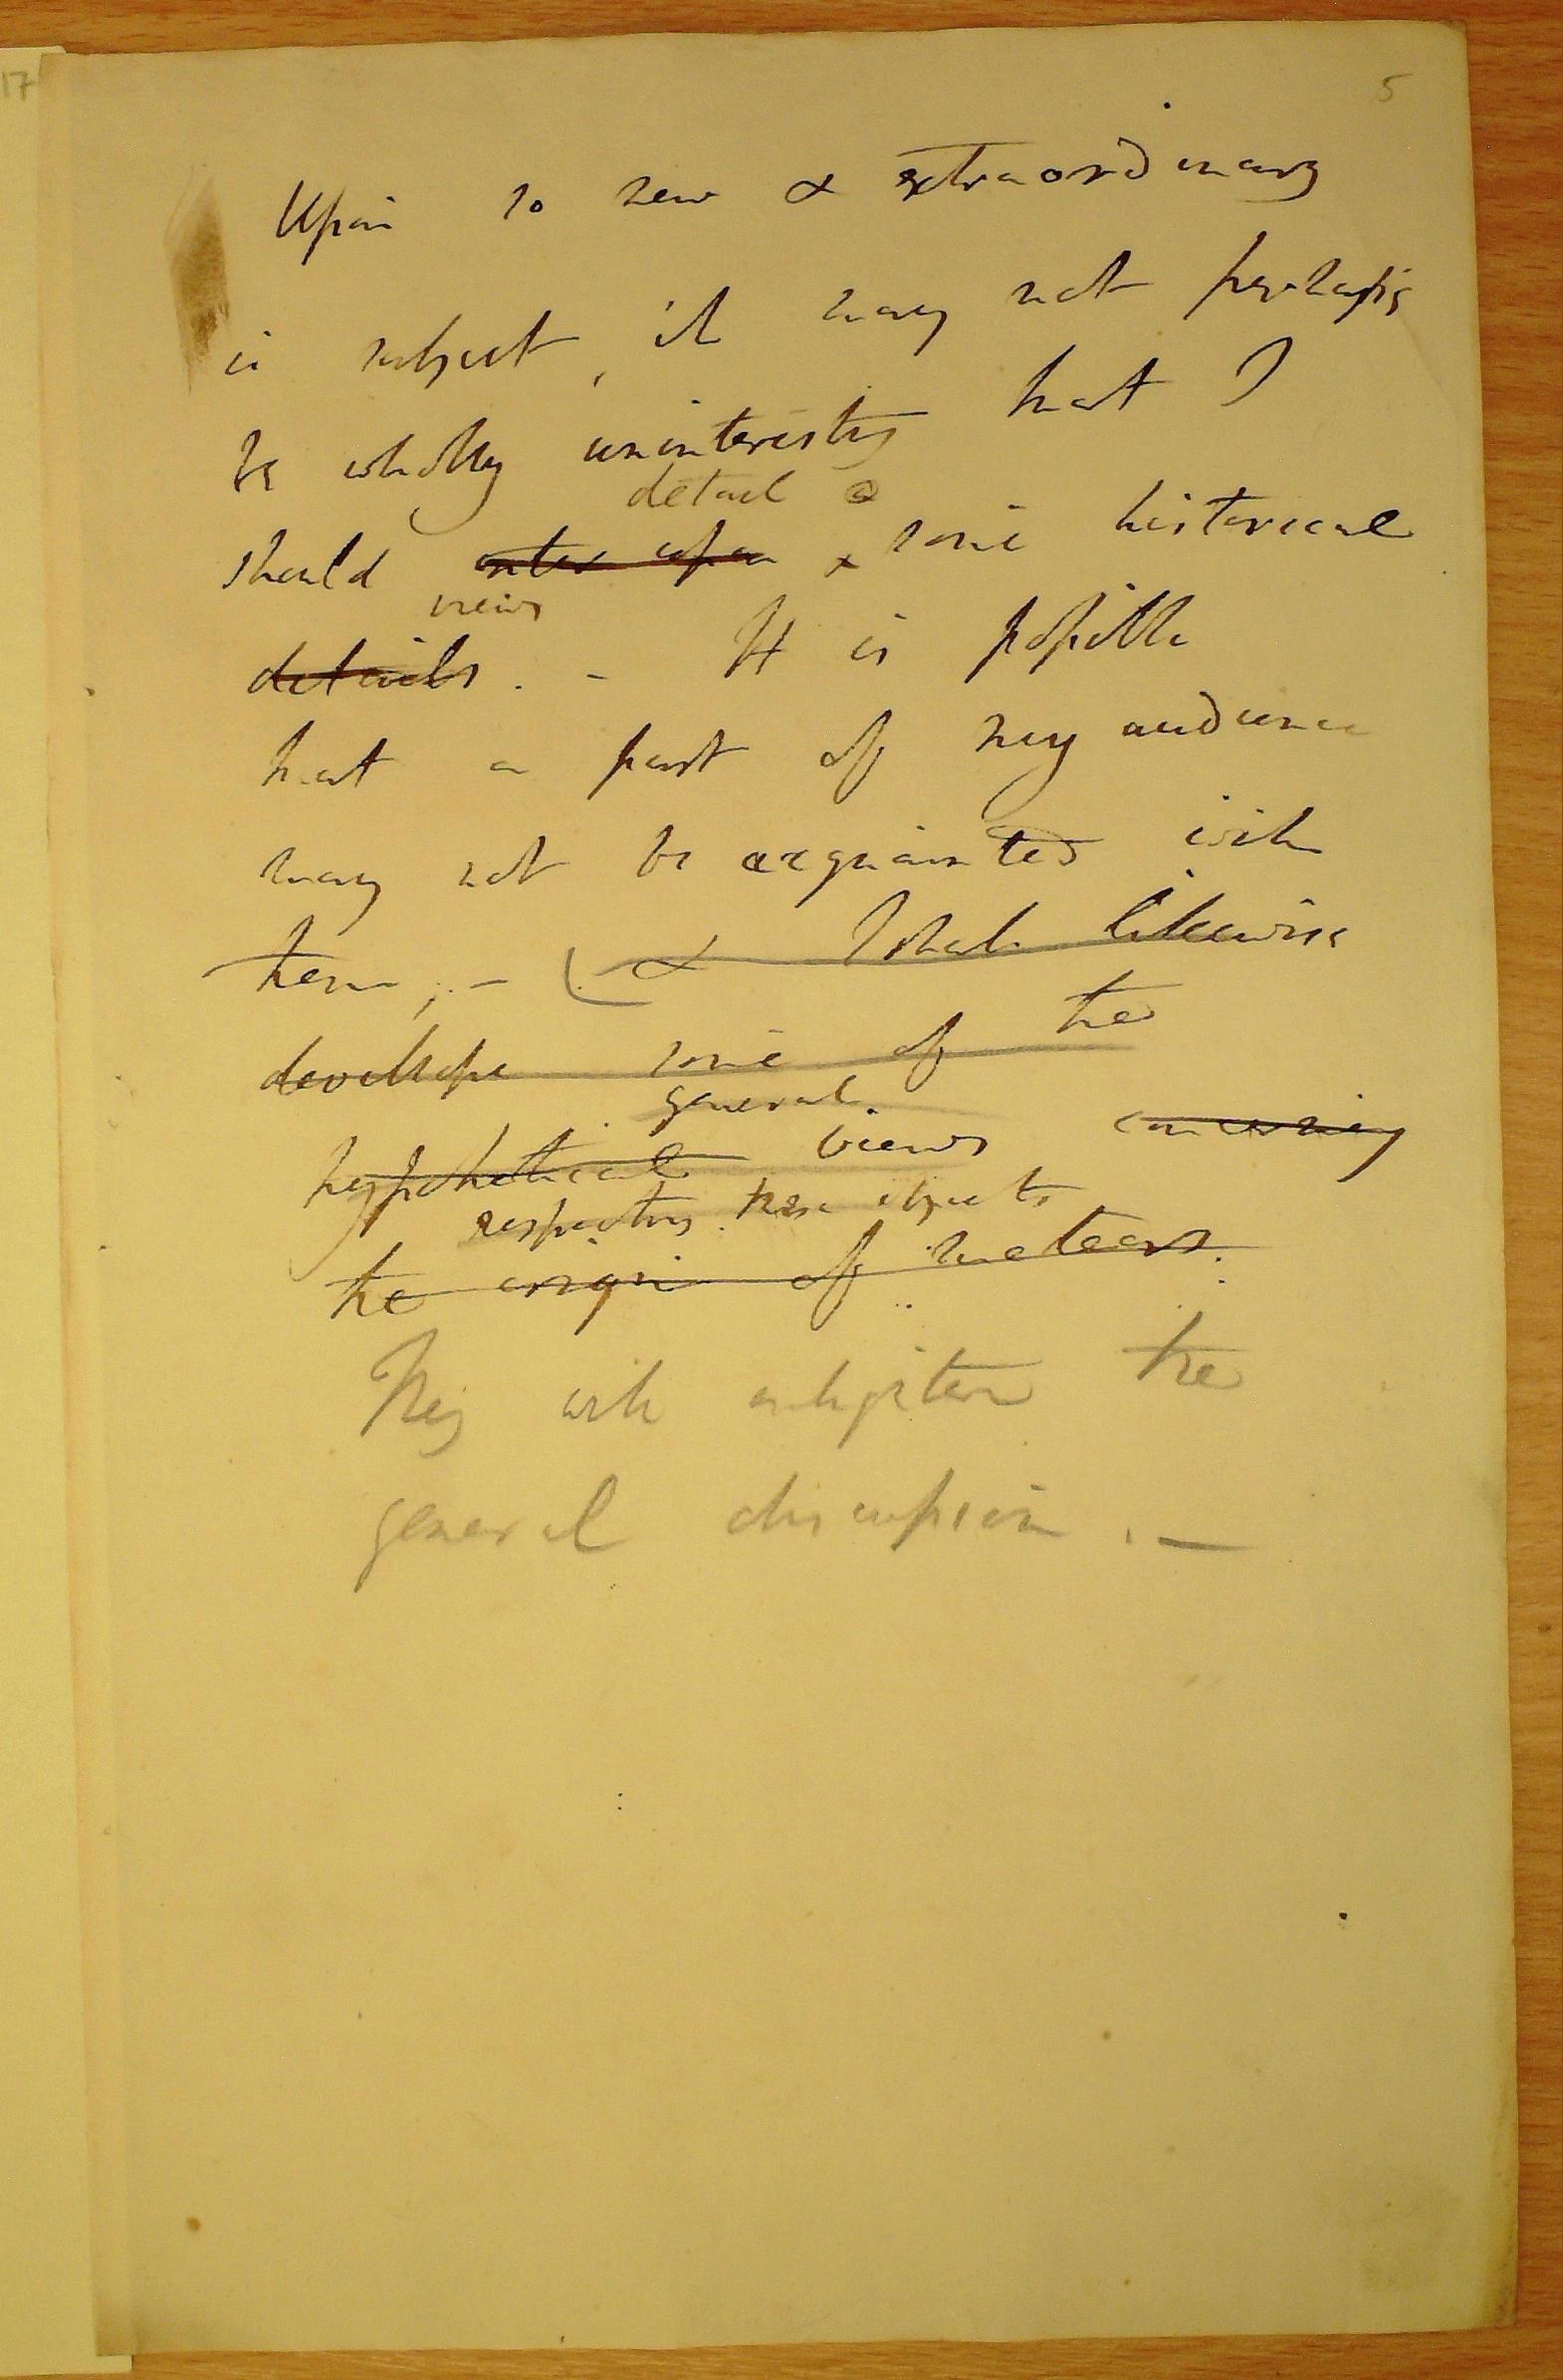 17
5
Upon so new & extraordinary
a subject, it may not perhaps
be wholly uninteresting that I
detail
should enter upon x some historical
views
details. - It is possible
that a part of my audience
may not be acquainted with
them; - & I shall likewise
develope some of the
general
hypothetical views concerning
respecting these objects
the origin of meteors.
They will enlighten the
general discussion. —